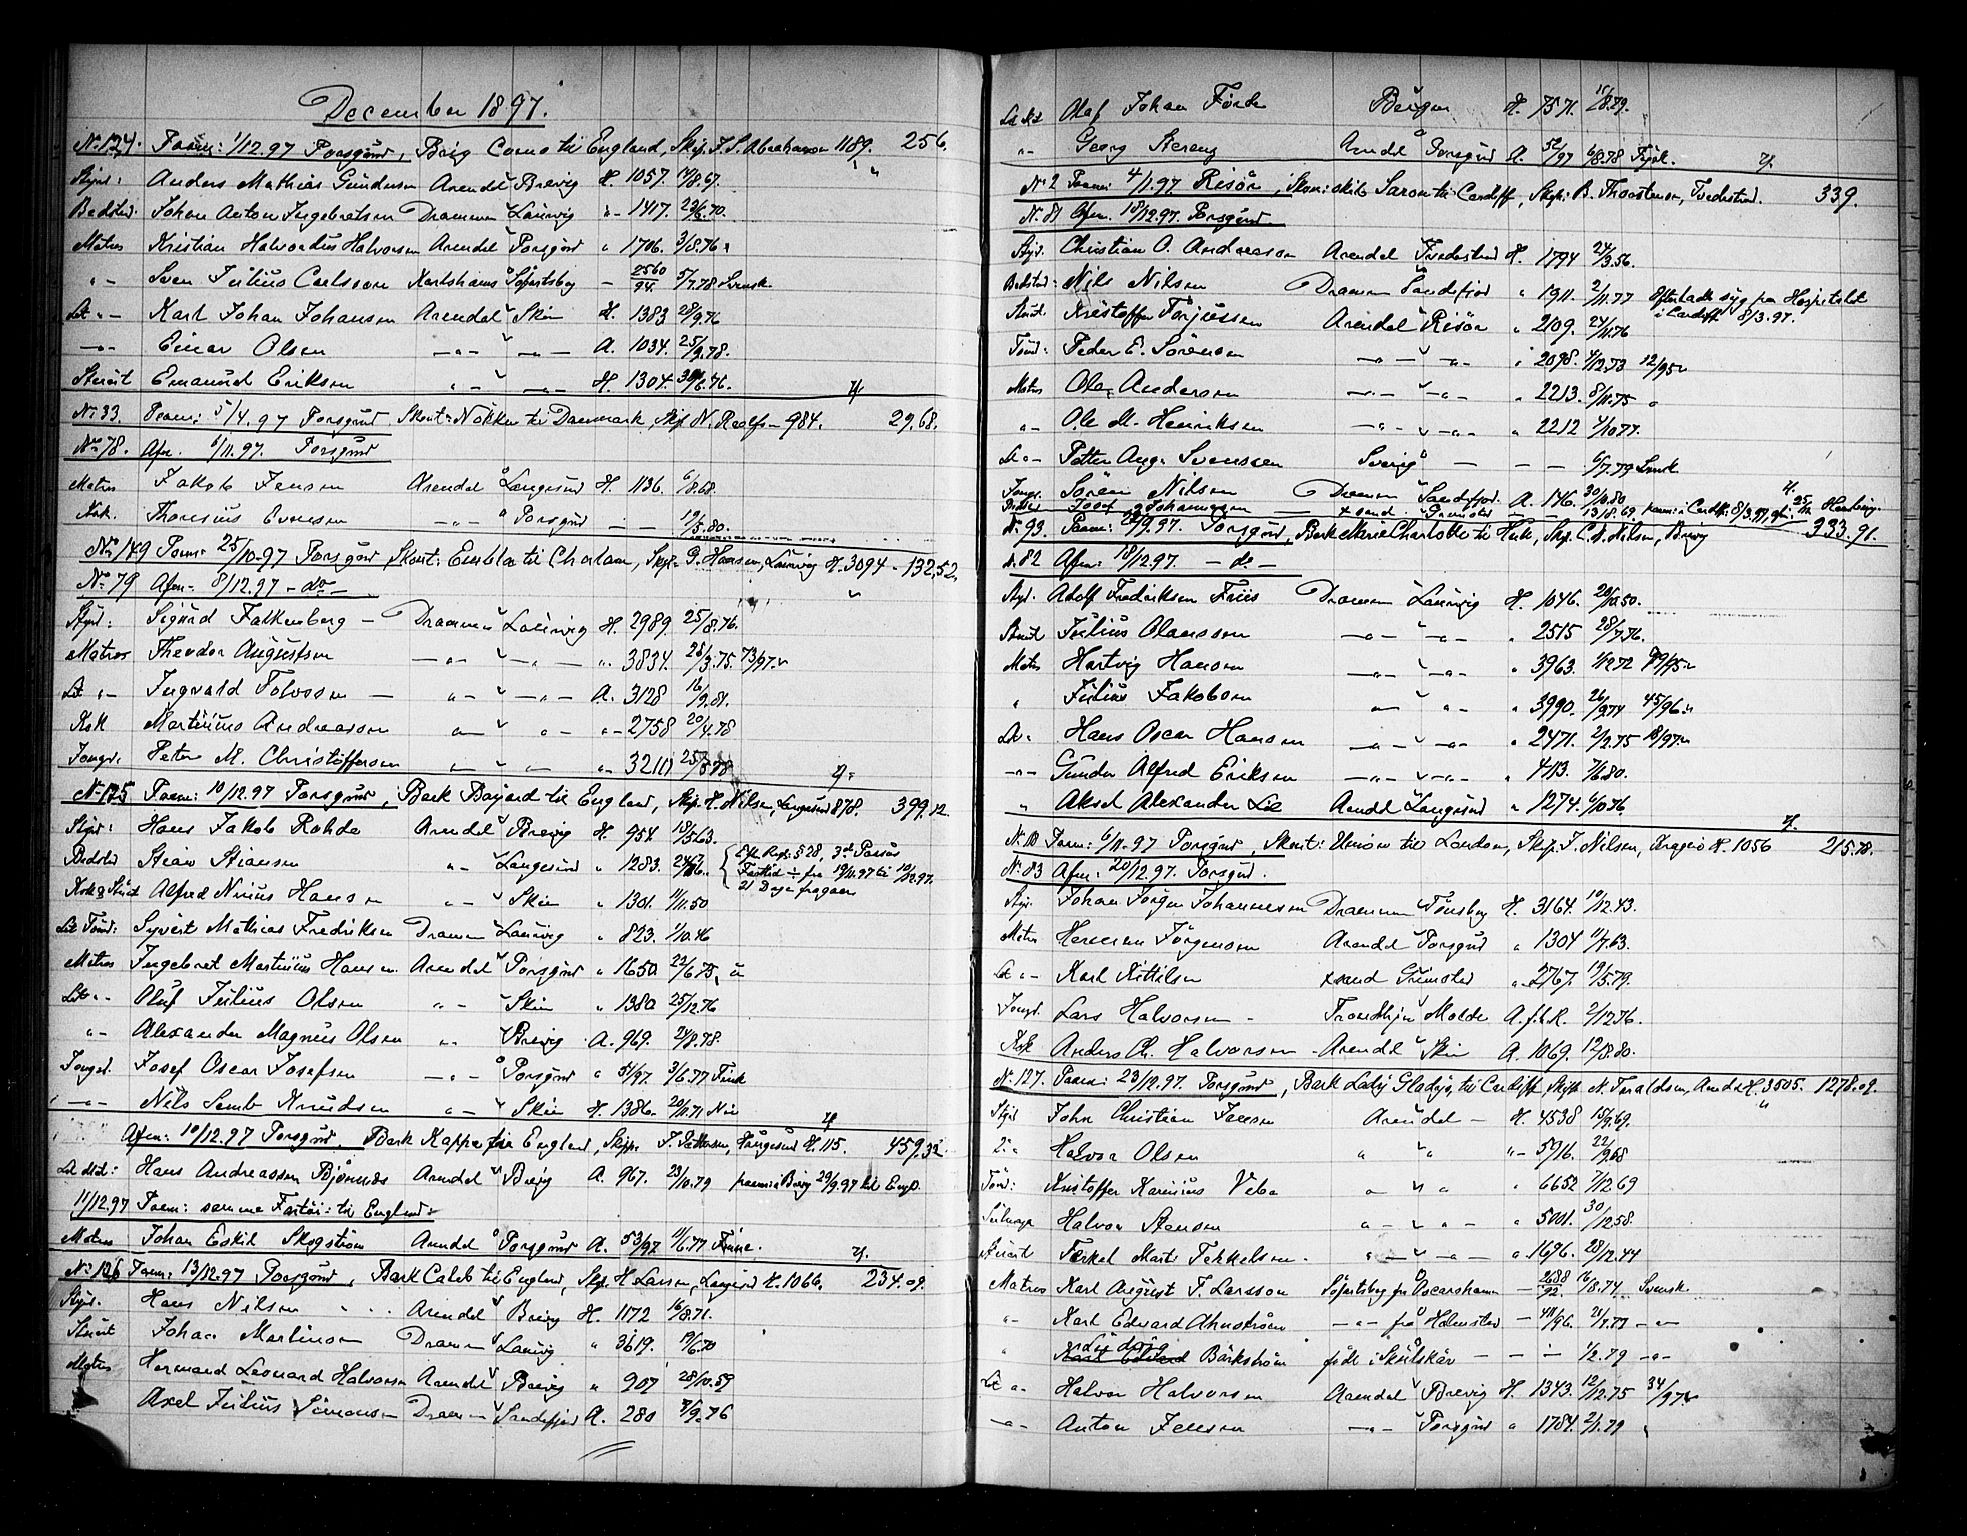 December 1897.
No 124. Paam: 1/12.97 Porsgrund, Brig Como til England, Skip. J. S. Abrahamsen 1189. 256.
Styrd: Anders Mathias Gundersen Arendal Brevig H. 1057. 14/8.67.
Bedstmd. Johan Anton Ingebretsen Drammen Laurvig "- 1417. 23/6.70.
Matros Kristian Halvordus Halvorsen Arendal Porsgrund " 1706. 3/8.76
"- Sven Julius Carlsson Karlshamn Söfartsbog - 2560/94. 5/7.78 Svensk
Let "- Karl Johan Johansen Arendal Skien H. 1383 28/9.76
-"- Einar Olsen -"- -"- A. 1034. 25/9.78.
Stuert Emanuel Eriksen "- -"- H. 1304. 30/6.76.
No 33. Paam: 5/4.97 Porsgrund Skont: Nökken til Danmark, Skip N. Rolfs- 984. 29,68.
No 78. Afm. 6/11.97. Porsgrund
Matros Jakob Jensen Arendal Langesund H. 1136. 6/8.68.
Kok. Thomsius Evensen -"- Porsgrund - - 19/5.80.
No 149 Paam: 25/10-97 Porsgrund Skont: Embla til Charlam, Skip. G. Hansen, Laurvig H. 3094 - 132,52.
No 79 Afm- 8/12.97 - do -
Styrd: Sigurd Falkenberg - Drammen Laurvig H. 2989. 25/8.76.
Matros Theodor Augustsen -"- -"- ". 3834. 28/3.75. 73/97.
Let "- Ingvald Tolvsen - "- -"- A. 3128 16/9.81.
Kok Martinius Andreassen "- "- "- 2758 20/4.78
Jungm. Peter M. Christoffersen "- "- "- 3210 25/8.78
No 125 Paam: 10/12.97 Porsgrund, Bark Bayard til England, Skip. H. Nilsen, Langesund 878. 399,12.
Styrd: Hans Jakob Rohde Arendal Brevig H. 954. 18/5.63.
Bedstmd Stian Stiansen "- Langesund " 1283. 24/6.
{ Efter Regl: § 28, 3die Passus
Fartöi ÷ fra 19/11.97 til 10/12.97.
21 Dage fragaar
Kok & Stuert Alfred Ninius Hansen "- Skien " 1301. 11/11.50
Let Tömd: Syvert Mathias Fredriksen Drammen Laurvig " 823. 1/10.46
Matros Ingebret Martinius Hansen. Arendal Porsgrund " 1650. 22/6.75
Let "- Oluf Julius Olsen "- Skien " 1380 25/12.76
"- Alexander Magnus Olsen "- Brevig A. 969. 24/8.78.
Jungm. Josef Oscar Josefsen -"- Porsgrund " 51/97. 3/6.77 Finsk
-"- Nils Semb Knudsen "- Skien H. 1386. 20/11.71
Afm: 10/12.97 Porsgrund. Bark Kappa fra England, Skip. J. Pettersen, Haugesund H. 115. 459,32.
Let Mtd: Hans Andreassen Bjönnes Arendal Brevig A. 967. 23/10.79 paam: i Brevig 29/9.97 til Engl.
11/12.97 Paam: samme Fartöi: til England:
Matros Johan Eskil Skogström Arendal Porsgrund A. 53/97 11/6.77 Finne.
No 126 Paam: 13/12.97 Porsgrund, Bark Caleb til England, Skip. H. Larsen, Langesund H. 1066. 234.09.
Styrd. Hans Nilsen Arendal Brevig H. 1172 16/8.71.
Stuert Johan Martinsen Drammen Laurvig " 3619. 19/6.70
Matros Hermand Leonard Halvorsen Arendal Brevig " 907 28/10.59
Axel Julius Simonsen Drammen Sandefjord A. 280 8/9.76
Let Mt Olaf Johan Förde Bergen H. 7571. 11/8.79.
"- Georg Arendal Porsgrund A. 52/97 6/8.78
No 2 Paam: 4/1.97 Risör, Skon: skib Saron til Cardiff, Skip. B. Thorstensen, Tvedestrand. 339.
No. 81 Afm. 18/12.97. Porsgrund
Styrd. Christian O. Andreassen Arendal Tvedestrand H. 1794 24/3.56.
Bedstmd: Nils Nilsen Drammen Sandefjord " 1911. 2/11.77 Efterladt syg paa Hospitalet
i Cardiff 8/3.97.
Stuert. Kristoffer Torjussen Arendal Risör " 2109. 24/11.76
Tömd: Peder E. Sörensen -"- -"- " 2098. 4/12.73 12/95
Matros Ola Andersen -"- -"- " 2213. 8/11.75 "
"- Ole M. Henriksen -"- -"- " 2212 4/10.77.
Let "- Petter Aug. Svenssen Sverig - - - 6/7.79 Svensk
Jungm. Sören Nilsen Drammen Sandefjord. A. 146. 30/10.80
Josef Johannessen Grimstad - - 13/8.69 paam: i Cardiff 8/3.97
No. 93. Paam: 9.97. Porsgrund, Bark Marie Charlotte til Hull, Skip. C. A. Nilsen, Brevig 333.91.
No. 82 Afm: 18/12.97. - do -
Styd. Adolf Fredriksen Friis Drammen Laurvig H. 1046. 20/10.50.
Stuert Julius Olaussen -"- -"- " 2515 28/7.76.
Matros Hartvig Hansen -"- -"- " 3963. 1/12.72
" Julius Jakobsen -"- "- " 3990. 26/9.74 45/96.
Let " Hans Oscar Hansen -"- -"- " 2471. 2/2.75 18/97.
-"- Gunder Alfred Eriksen -"- -"- " 413. 7/6.80.
" Aksel Alexander Lie Arendal Langesund " 1274. 6/10.76
No. 10 Paam: 6/11.97 Porsgrund, Skont: Union til London, Skip. J. Nilsen, Kragerö H. 1056 215.78.
No. 83 Afm: 20/12.97. Porsgrund.
Styr. Johan Jörgen Johannesen Drammen Tönsberg H. 3164. 10/12.43.
Matros Herman Jörgensen Arendal Porsgrund " 1304 11/7.63.
Let "- Karl Kittilsen Grimstad "- 2767. 19/5.79.
Jungm. Lars Halvorsen - Trondhjem Molde A. f. l. R. 2/12.76.
Kok Anders Ch. Halvorsen - Arendal Skien A. 1069. 12/8.80.
No. 127. Paam: 23/12.97. Porsgrund, Bark Lady Gladys, til Cardiff, Skip. N. Taraldsen, Arendal H. 3505. 1278.09.
Styd John Christian Jensen Arendal - H. 4538 15/9.69.
2. " Halvor Olsen " " " "- 5016. 22/9.68
Tömd: Kristoffer Karinius Vebe " " " " 6652 7/12.69
Seilmager Halvor Stensen "- "- " 5001. 30/12.58.
Stuert Terkel Marti Terkelsen. "- "- " 1696. 28/12.44
Matros Karl August T. Larsson Söfartsbog fra Oscarshamn - 2688/92. 16/8.74 Svensk.
"- Karl Edvard Ahnström -"- fra Halmstad - 411/96. 21/7.77 -"-
" Karl Edvard Bärkström född i Skutskär - - - 1/2.79 -"-
Let "- Halvor Halvorsen Arendal Brevig H. 1343. 12/12.75 34/97
-"- Anton Jensen -"- Porsgrund " 1784. 2/1.79